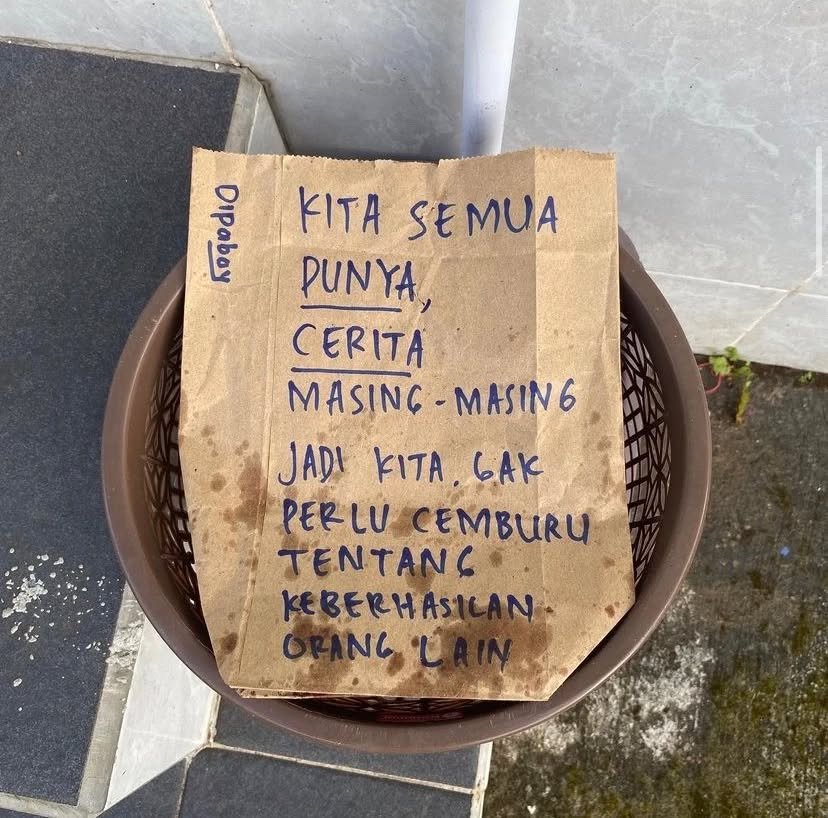 Dipabay
KITA SEMUA
PUNYA,
CERITA
MASING-MASING
JADI KITA. GAK
PERLU CEMBURU
TENTANG
KEBERHASILAN
ORANG LAIN